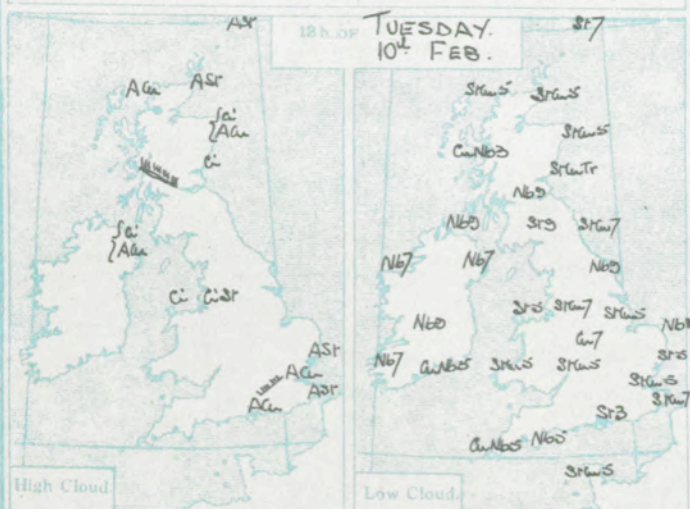 18h. OF TUESDAY.
10th FEB.
ASt
ACu
ASt
{Ci
ACu
Ci
{Ci
ACu
Ci CiSt
ASt
ACu
ASt
ACu
High Cloud
St7
StCu5 StCu5
StCu5
CuNb3
StCuTr
Nb9
Nb9 St9 StCu7
Nb7 Nb7 Nb9
St5 StCu7 StCu5
Nb8
Cu7
St5
Nb7 CuNb5 StCu5 StCu5
StCu5
StCu7
St3
CuNb5 Nb5
StCu5
Low Cloud.